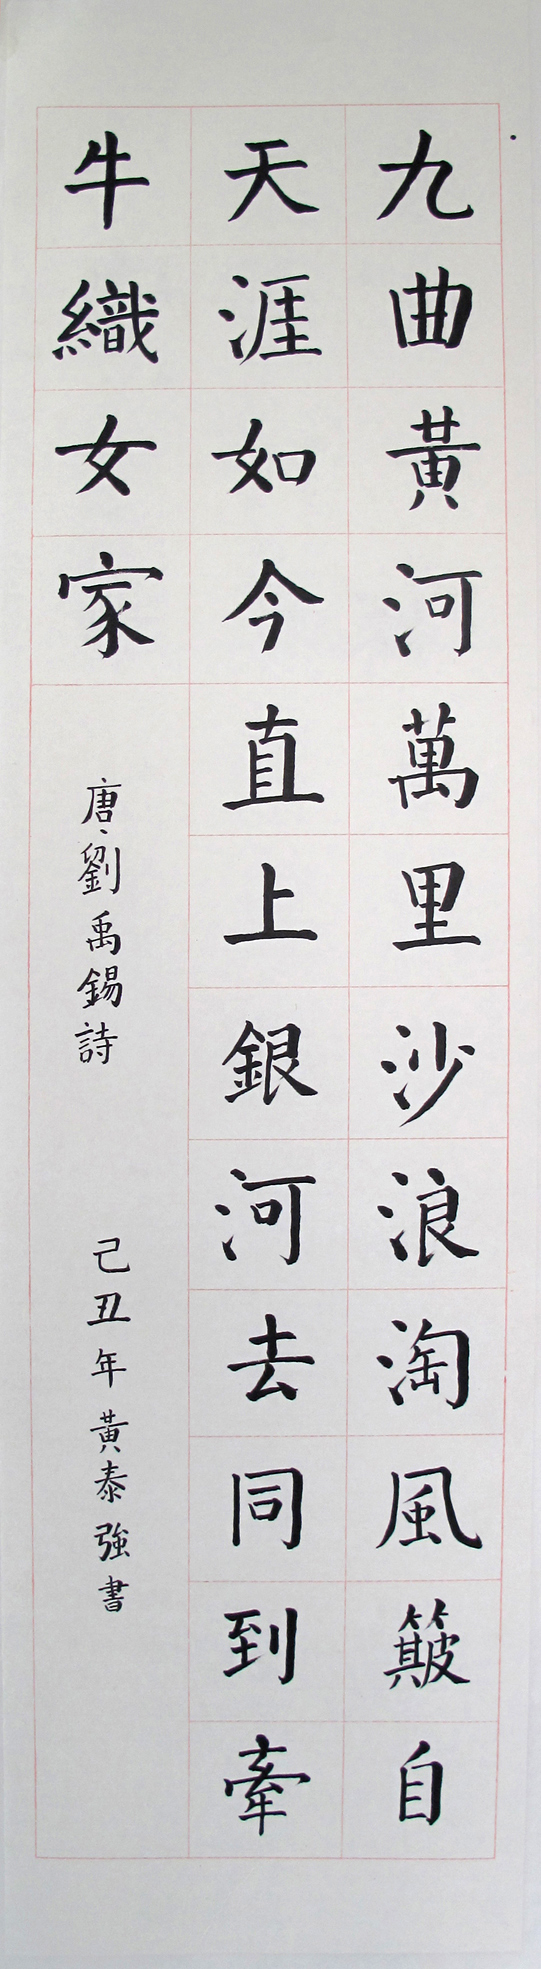 九曲黃河萬里沙浪淘風簸自
天涯如今直上銀河去同到牽
牛織女家
唐、劉禹錫詩
己丑年黃泰強書